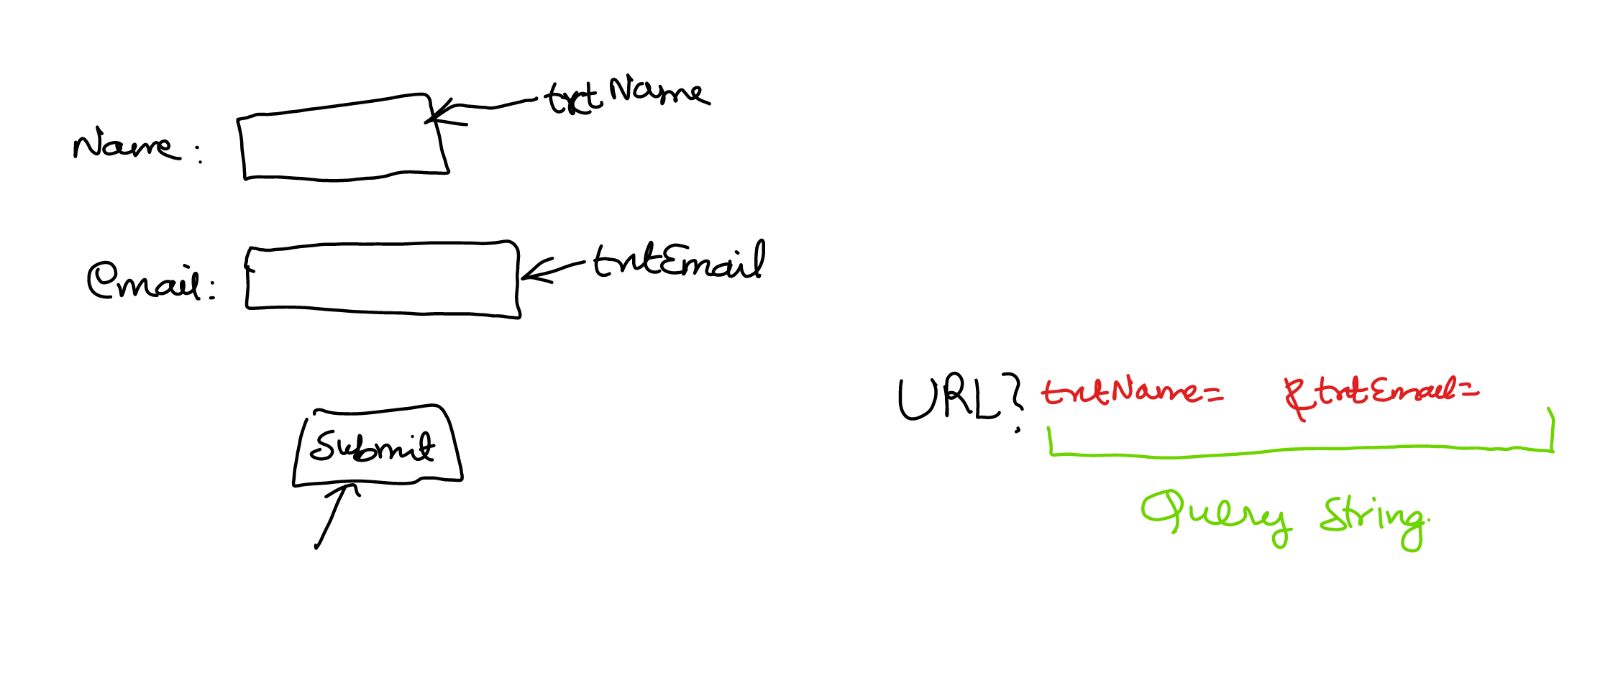 Name: txtName
Email: txtEmail
Submit
URL? txtName= &txtEmail=
Query String